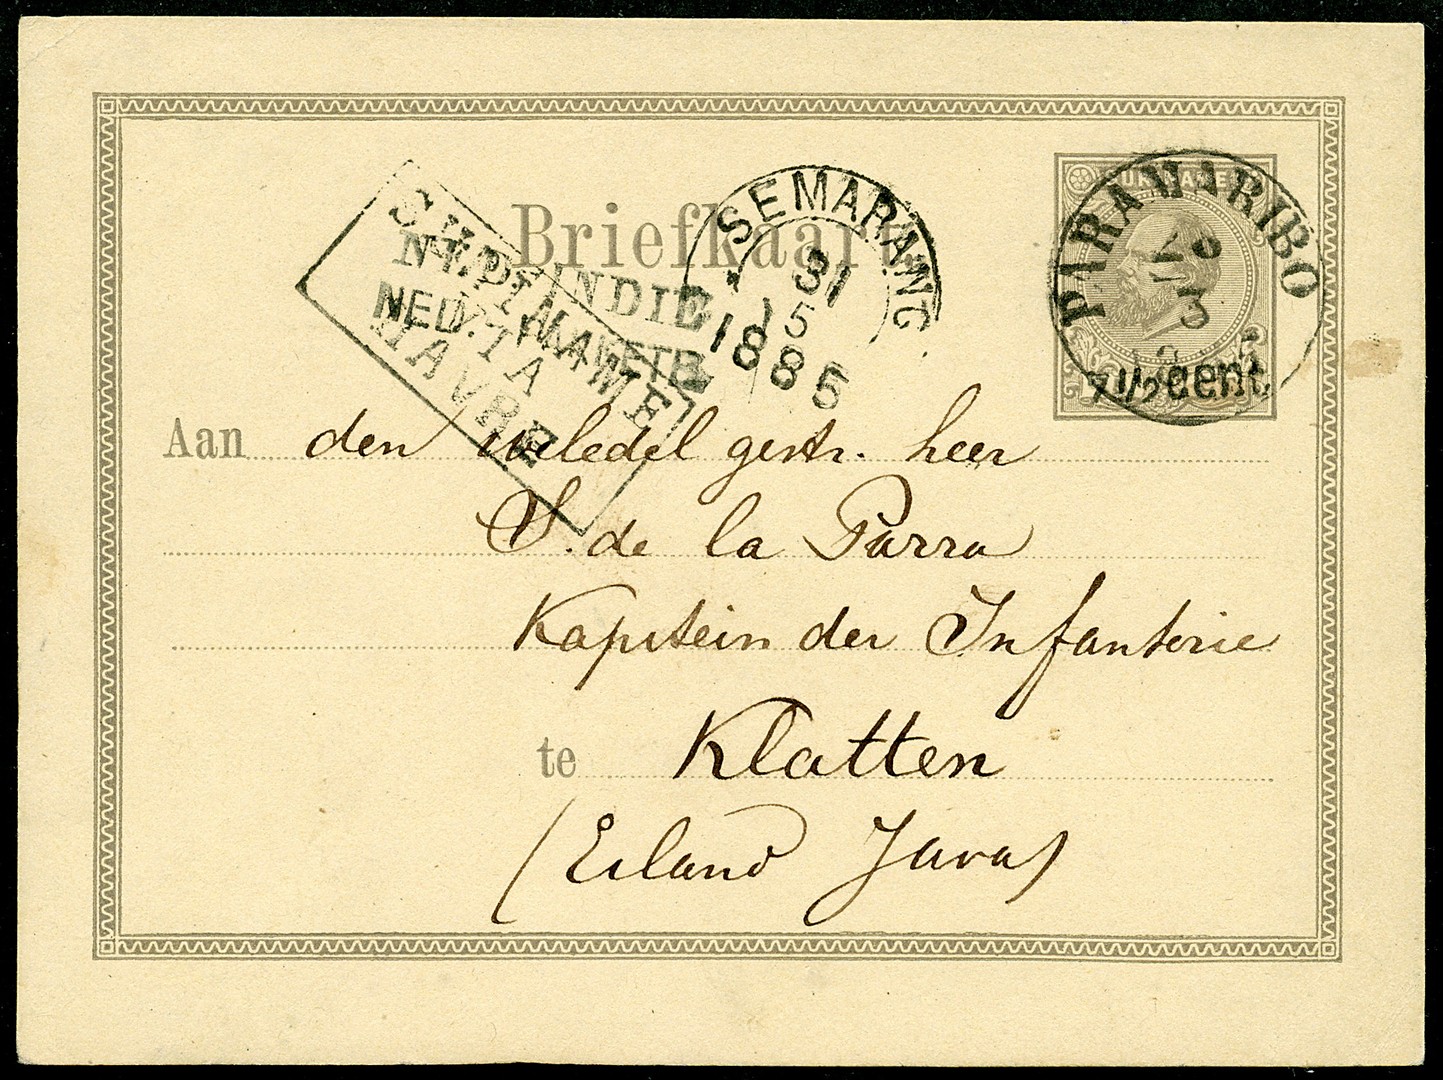 SURINAME
PARAMARIBO
3
7 1/2 Cent.
Briefkaart.
SURINAME
VIA
HAVRE
NED. INDIE
SEMARANG
31
5
1885
Aan den weledel gestr. heer
S. de la Parra
Kapitein der Infanterie
te Klatten
(Eiland Java)